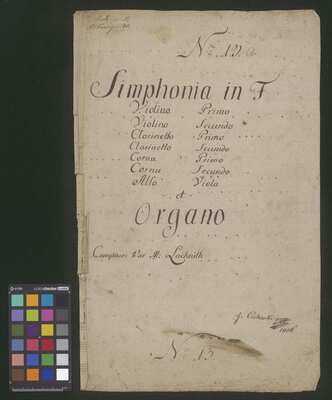 Nr. 12
Simphonia in F
Violino Primo
Violino Secundo
Clarinetto Primo
Clarinetto Secundo
Cornu Primo
Cornu Secundo
Alto Viola
et
Organo
Lachnith
No 13.